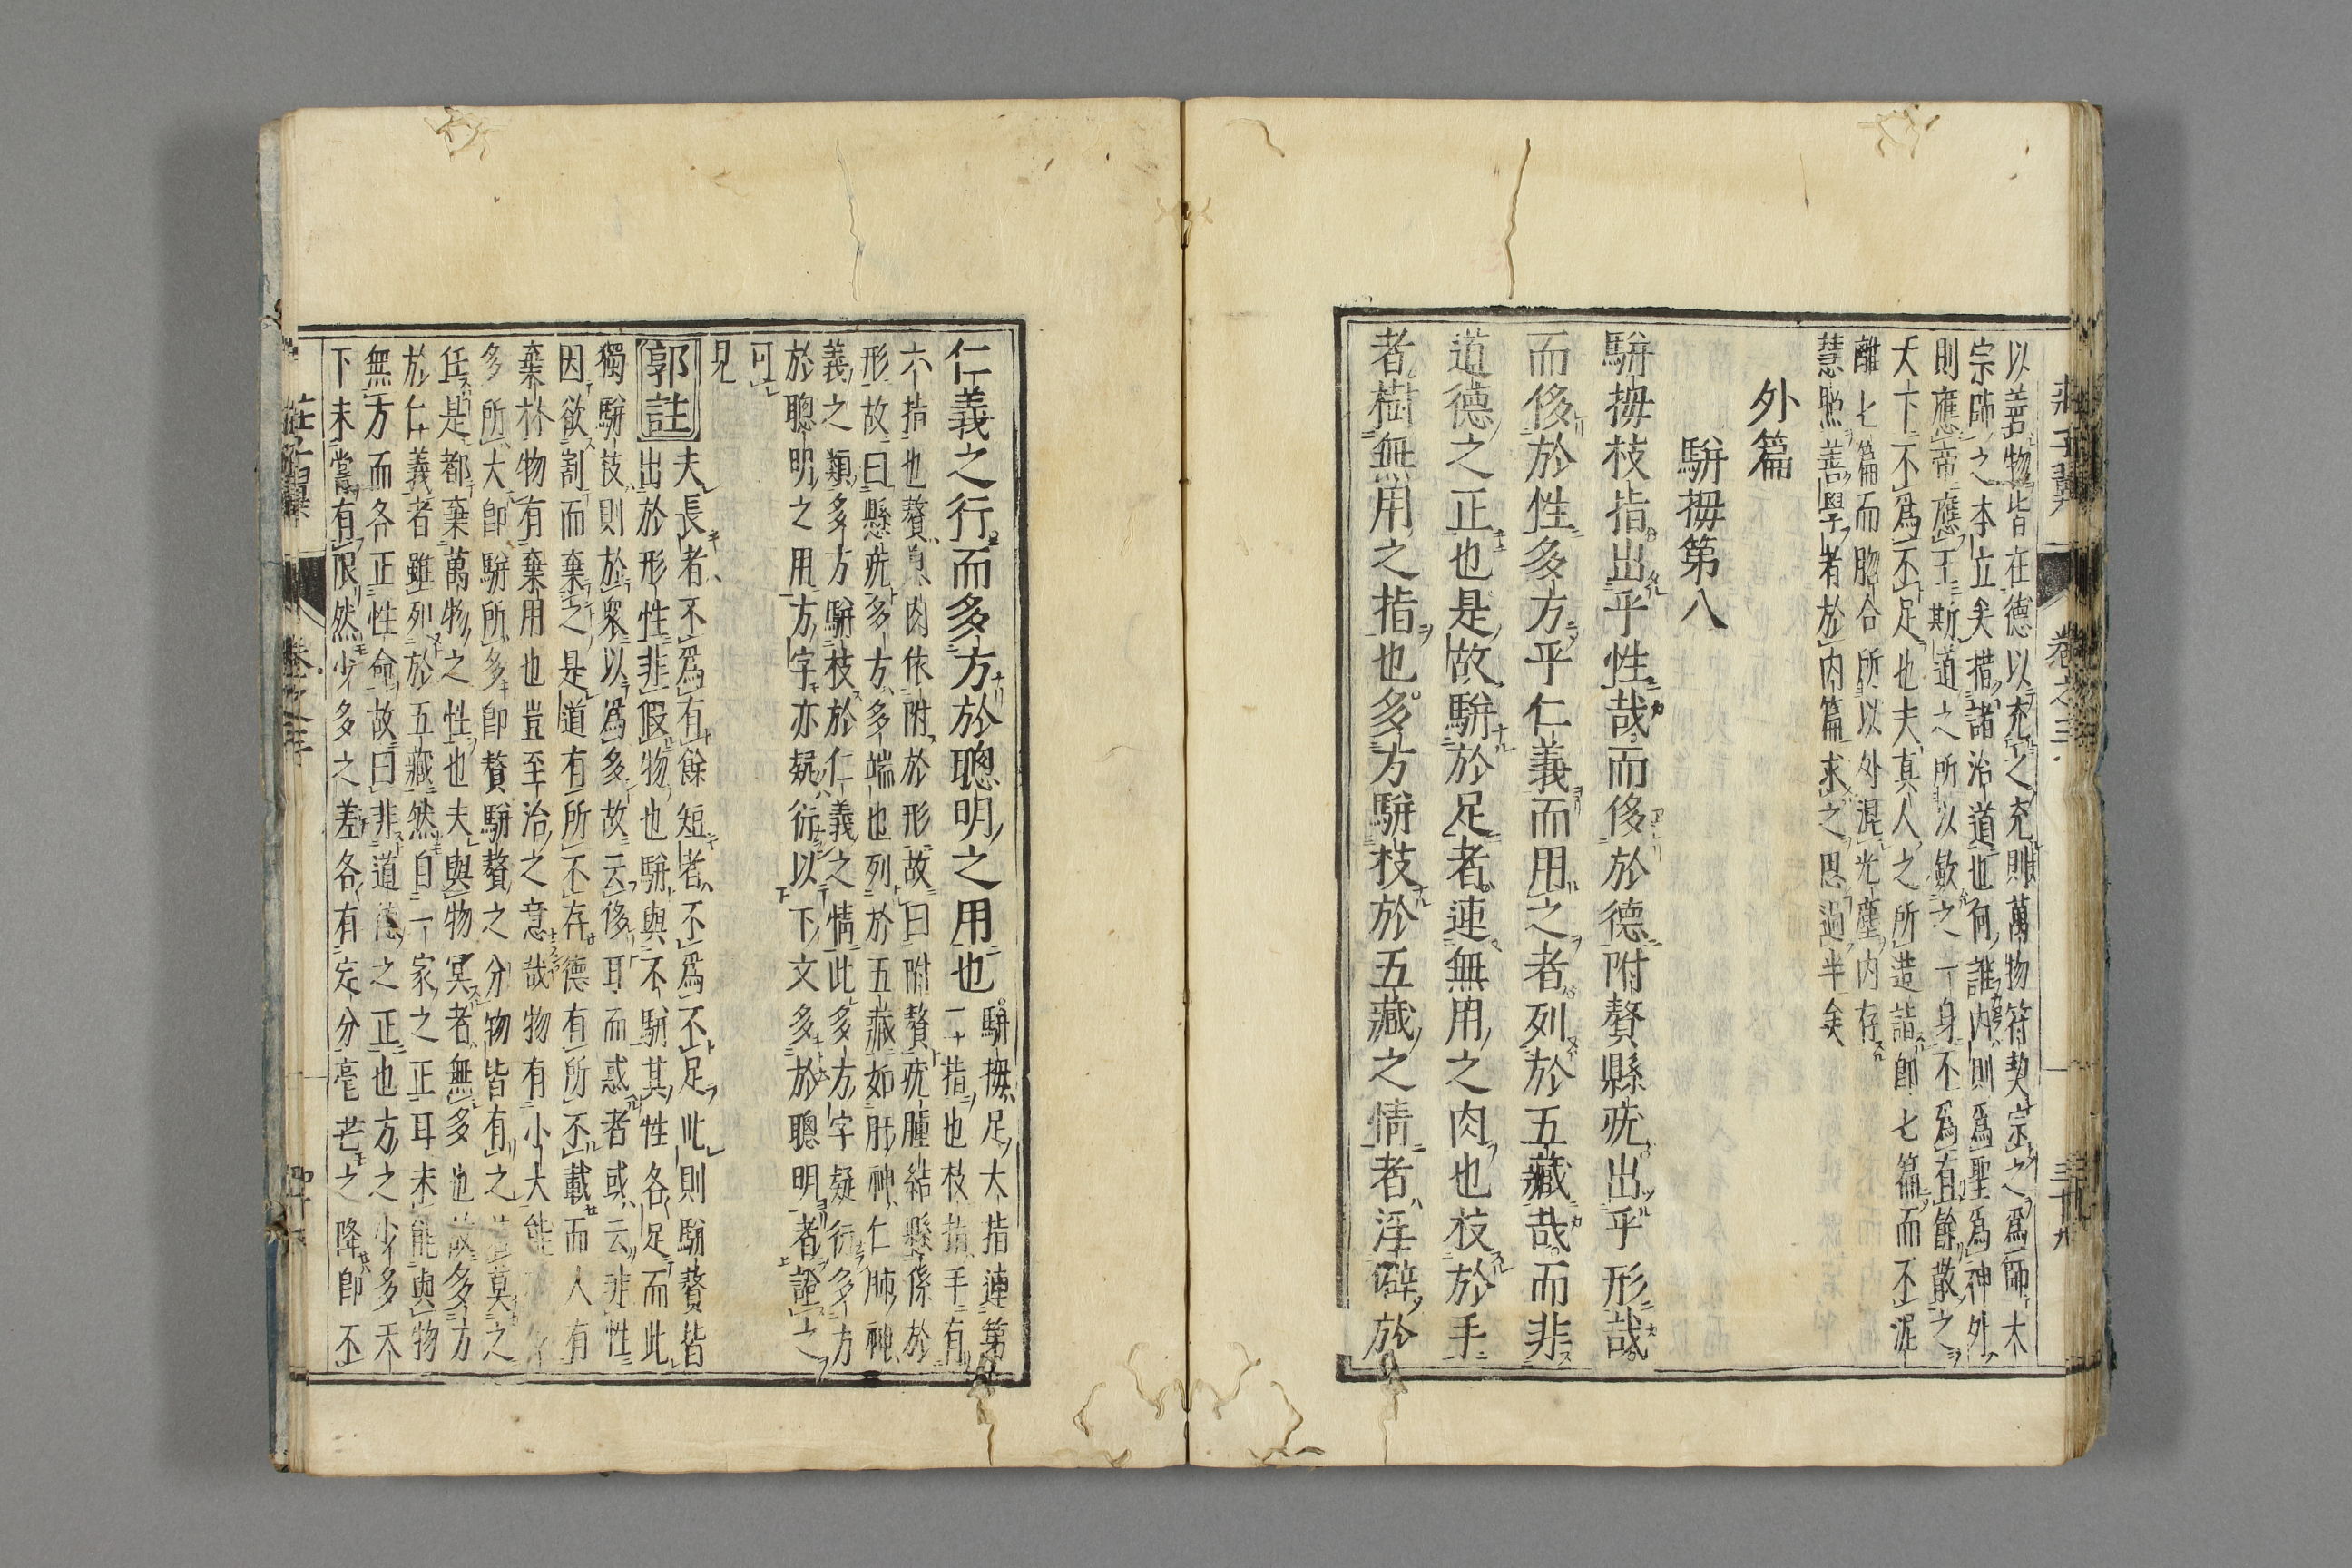 莊子翼 卷之三 三十九
以善物皆在德以充之充則萬物符契宗之爲師大
宗師之本立矣措諸治道也何誰内則爲聖爲神外
則應帝應王斯道之所以斂之一身不爲有餘散之
天下不爲不足也夫真人之所造詣即七篇而不泥
離七篇而脗合所以外混光塵内存
慧照善學者於内篇求之思過半矣
外篇
駢拇第八
駢拇枝指出乎性哉而侈於德附贅縣疣出乎形哉
而侈於性多方乎仁義而用之者列於五藏哉而非
道德之正也是故駢於足者連無用之肉也枝於手
者樹無用之指也多方駢枝於五藏之情者淫僻於
仁義之行而多方於聰明之用也
駢拇足大指連第
一指也枝指手有
六指也贅肉依附於形故曰附贅疣腫結懸係於
形故曰懸疣多方多端也列於五藏如肝神仁肺神
義之類多方駢枝於仁義之情此多方字疑衍多方
於聰明之用方字亦疑衍以下文多於聰明者證之
可
見
郭註
夫長者不爲有餘短者不爲不足此則駢贅皆
出於形性非假物也駢與不駢其性各足而此
獨駢枝則於衆以爲多故云侈耳而惑者或云非性
因欲割而棄之是道有所不存德有所不載而人有
棄材物有棄用也豈至治之意哉物有小大能
多所大即駢所多即贅駢贅之分物皆有之莫之
任是都棄萬物之性也夫與物冥者無多也故多方
於仁義者雖列於五藏然自一家之正耳未能與物
無方而各正性命故曰非道德之正也方之少多天
下未嘗有限然少多之差各有定分毫芒之降即不
莊子翼 卷之三 四十